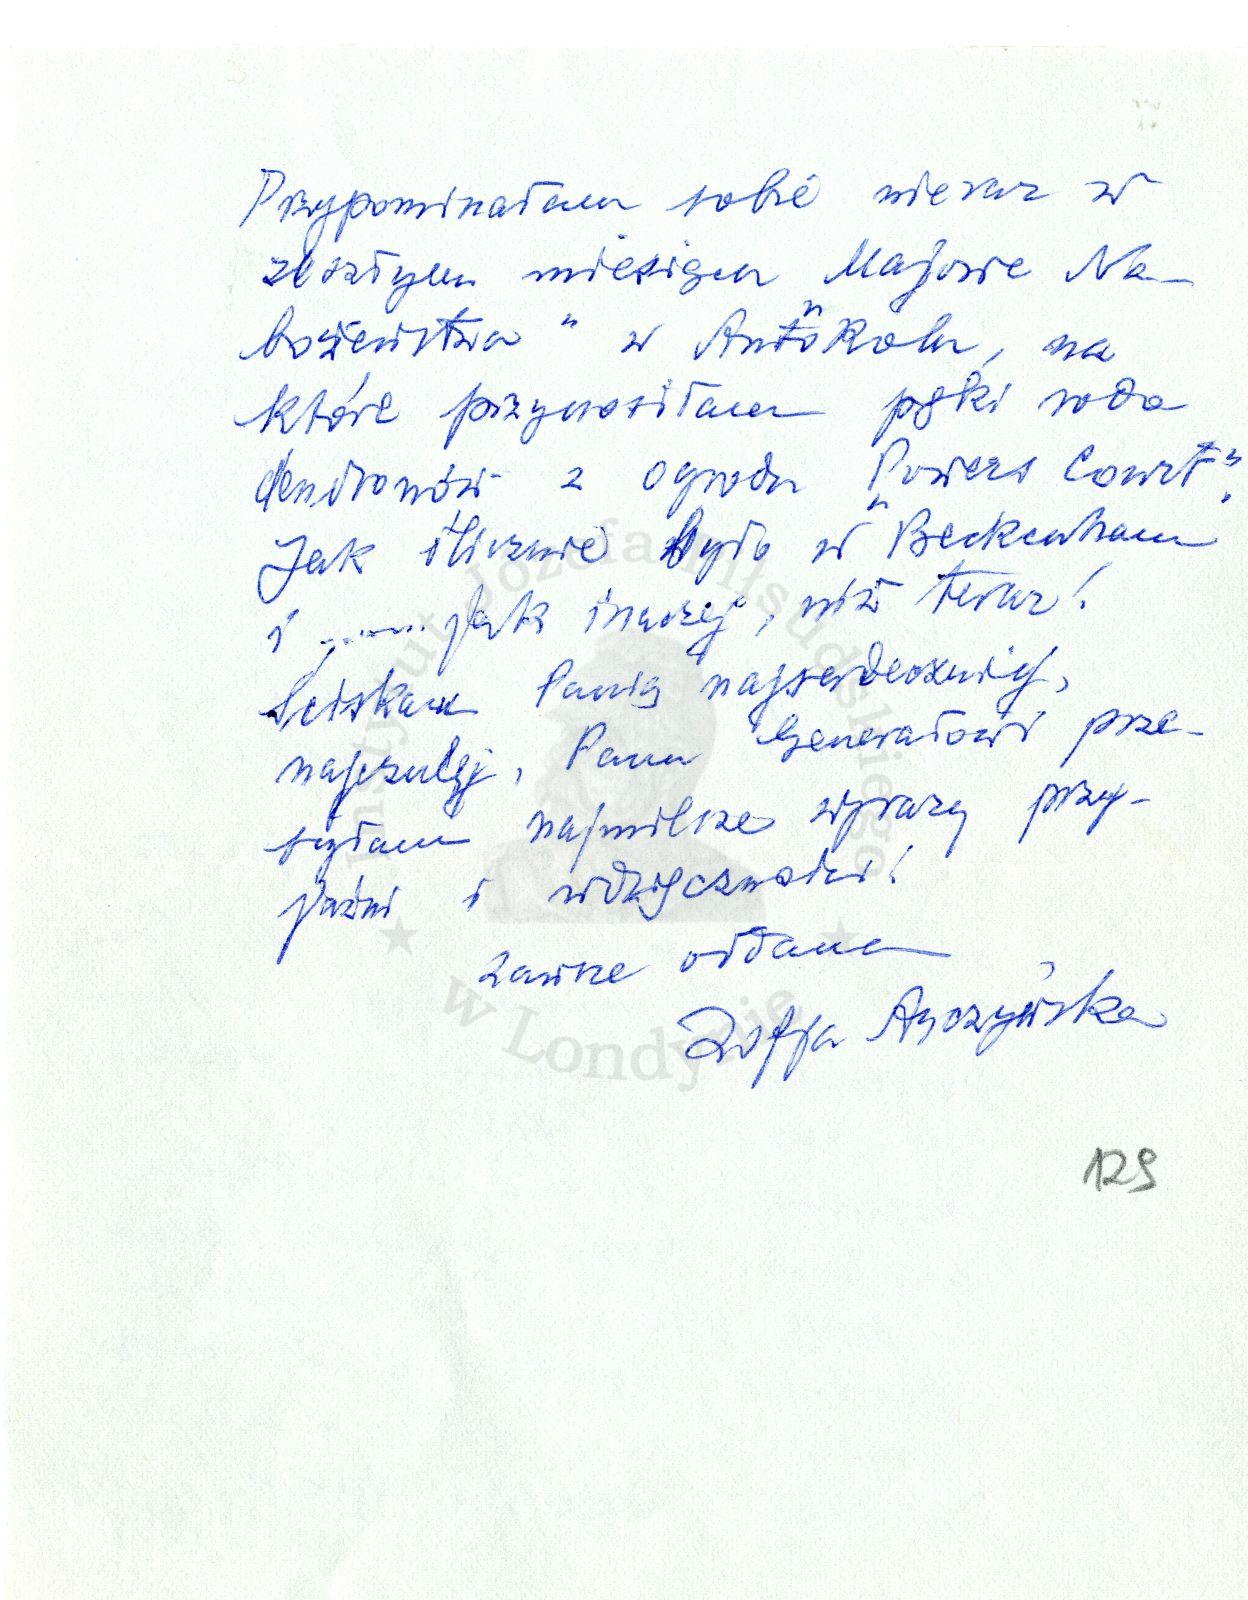 Przypominałam sobie nieraz w
zeszłym miesiącu Majowe Na-
bożeństwa" w "Antokolu, na
które przynosiłam pęki rodo
dendronów z ogrodu "Powers Court".
Jak ślicznie było w "Beckenham
i ........ jak inaczej, niż teraz!
Ściskam Panią najserdeczniej,
najczulej, Panu Generałowi prze-
syłam najmilsze wyrazy przy-
jaźni i wdzięczności!
zawsze oddana
Zofja
129
Instytut Józefa Piłsudskiego
★ w Londynie ★